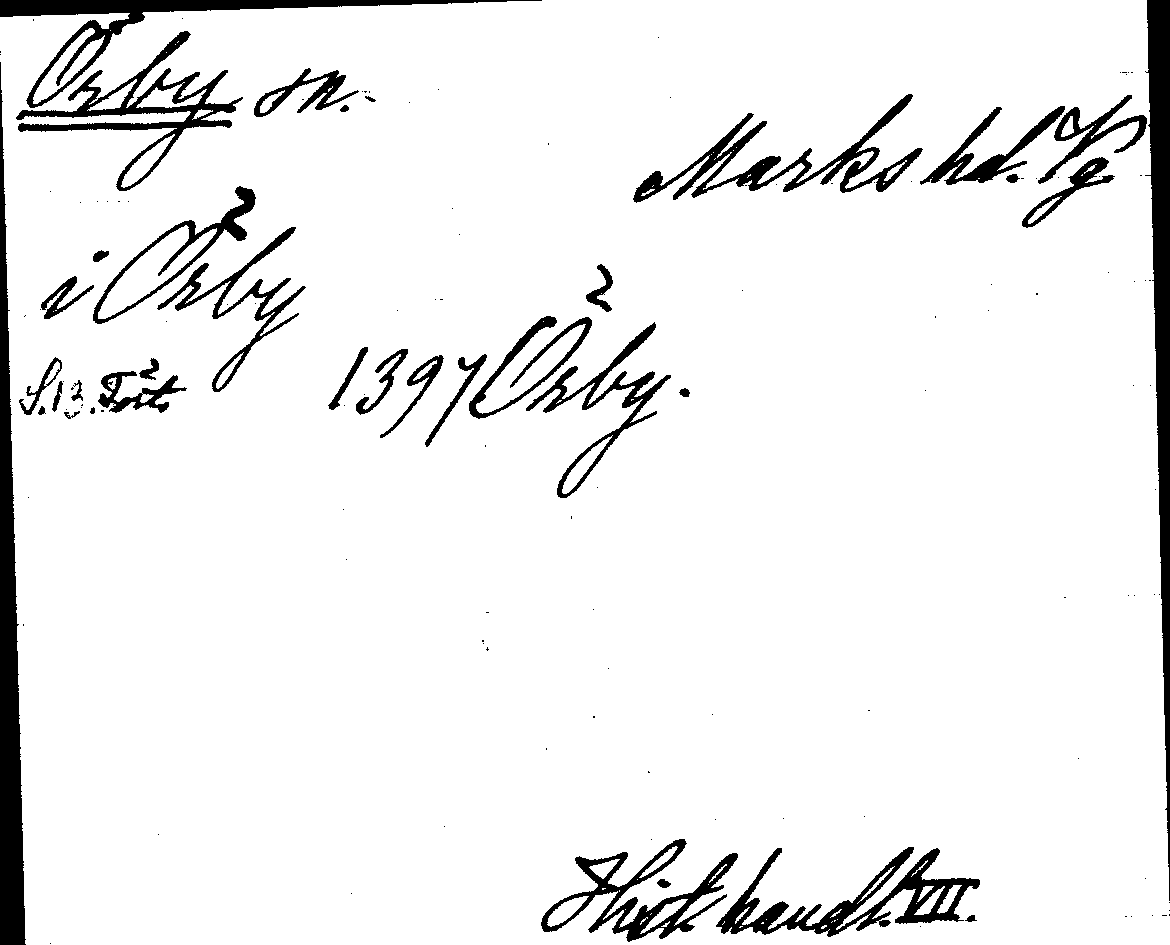 Örby sn.
Marks hd. Vg
i Örby
S. 13. Tort.
1397 Örby.
Hist. handl. VII.